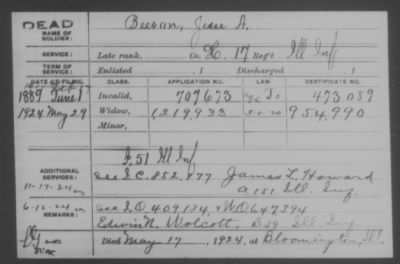 DEAD
NAME OF SOLDIER:
Beevan, Jesse A.
SERVICE:
Late rank, Co. H, 17 Reg't Ill Inf
TERM OF SERVICE:
Enlisted , 1 Discharged , 1
DATE OF FILING. CLASS. APPLICATION NO. CERTIFICATE NO.
1889 June 17 Invalid, 707673 473,089
1924 May 29 Widow, 1,219,933 954,990
Minor,
F. 51 Ill Inf
ADDITIONAL SERVICES:
see I.C. 852,177 James L. Howard
11-17-24 A 151 Ill. Inf.
6-12-24
REMARKS:
see I.O. 409134, & W.O. 647394
Edwin N. Wolcott, B 39 Ill Inf
Died May 17, 1924, at Bloomington, Ill.